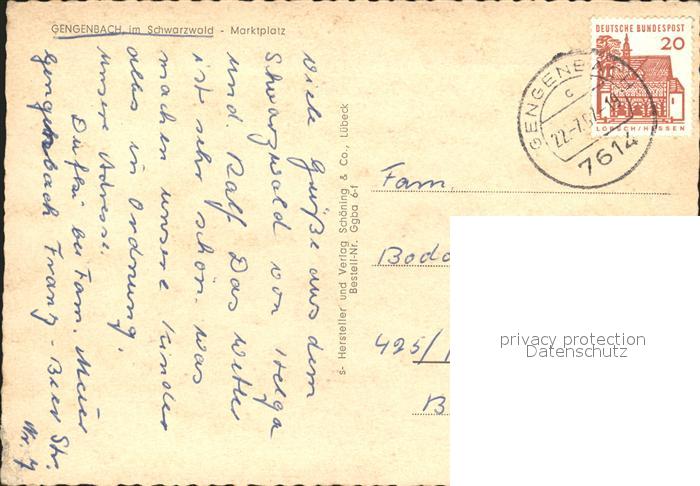 GENGENBACH, im Schwarzwald - Marktplatz
Viele Grüße aus dem
Schwarzwald von Helga
und Ralf Das Wetter
ist sehr schön. Was
machen unsere Kinder
alles in Ordnung.
unsere Adresse.
bei Fam.
Gengenbach Franz-Beer Str.
Nr. 7
s- Hersteller und Verlag Schöning & Co., Lübeck
Bestell-Nr. Ggba 6-f
DEUTSCHE BUNDESPOST
20
LORSCH/HESSEN
GENGENBACH
c
7614
Fam.
495/
B
privacy protection
Datenschutz